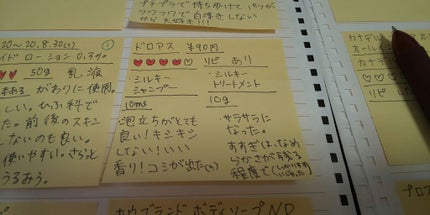 プチプラで持ち歩けて
フワフワで白浮きしない
から大好き!!!
20~20.8.30(1)
①
ローション 0.3%
50g 乳液
がわりに使用。
しい。ひふ科で
た。前後のスキン
ないのも良い。
使いやすい。さらっと
うるおう。
ドロアス ¥90円
リピ あり
・シルキー
シャンプー
10ml
泡立ちがとても
良い!キシキシ
しない!いい
香り!コシが出た(?)
・シルキー
トリートメント
10g
・サラサラに
なった。
すすぎは、なめ
らかさが残る
程度で
カナデ
オール
カウブランド ボディソープ ND
プロス